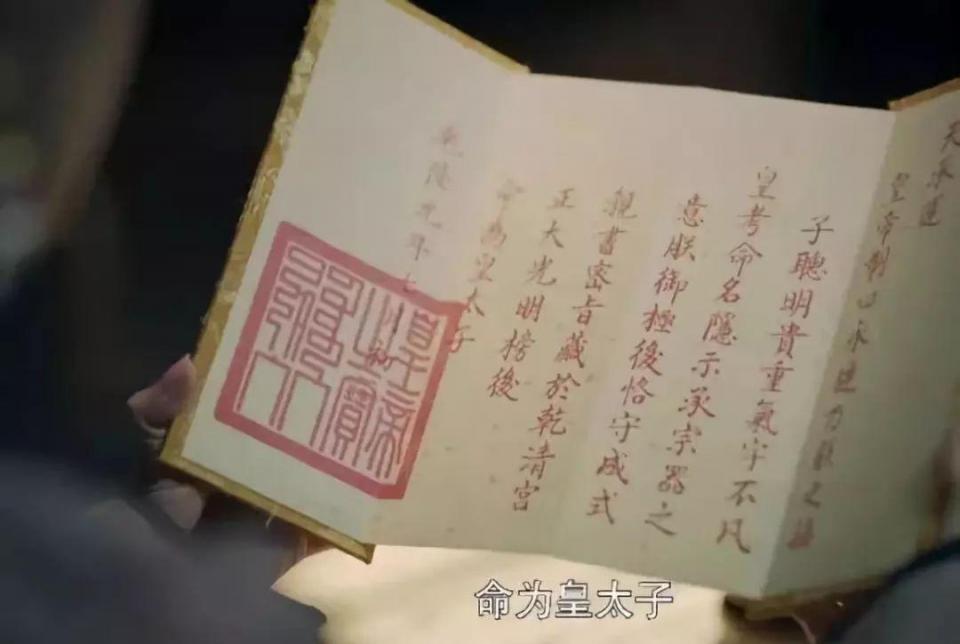 天承運
皇帝制曰永璉乃朕之嫡
子聰明貴重氣宇不凡
皇考命名隱示承宗器之
意朕御極後恪守成式
親書密旨藏於乾清宮
正大光明榜後
命為皇太子
乾隆元年七月初
皇帝之寶
命为皇太子